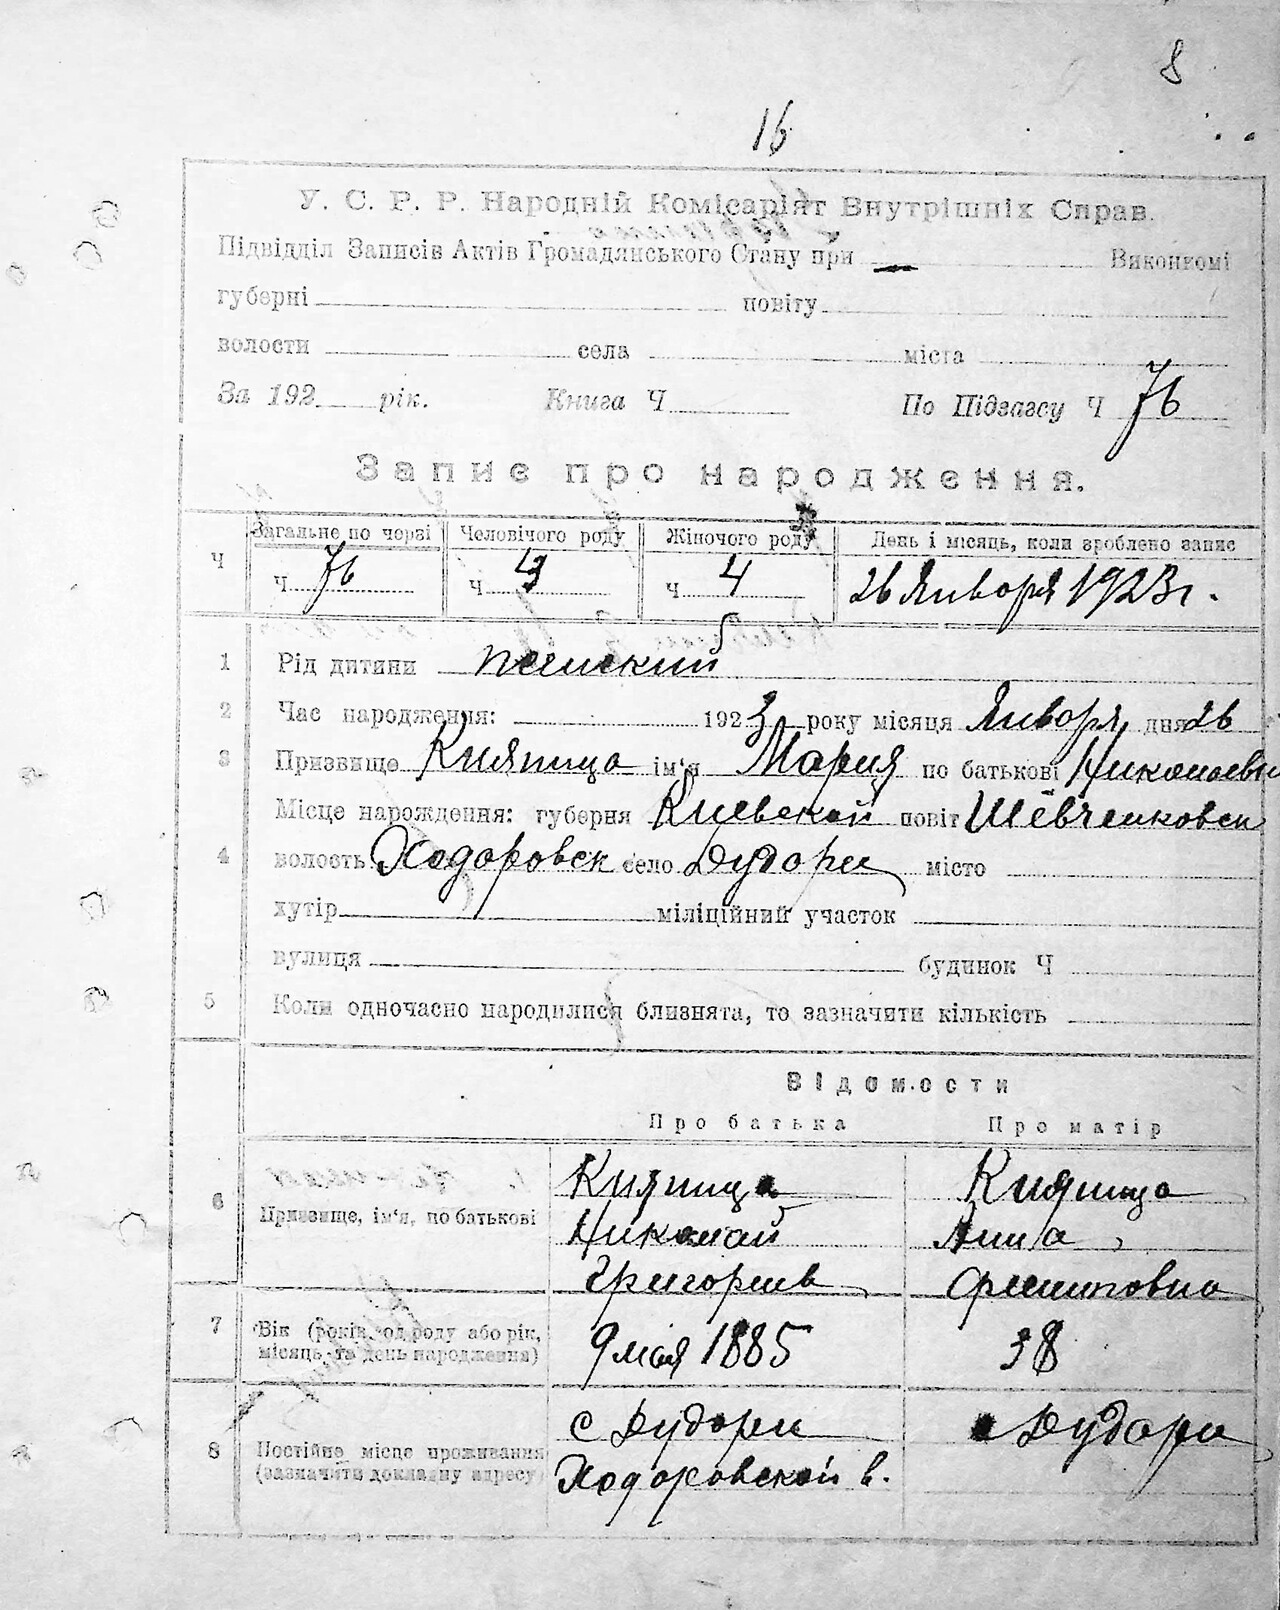 8
16
У. С. Р. Р. Народній Комісаріят Внутрішніх Справ.
Підвідділ Записів Актів Громадянського Стану при Виконкомі
губерні повіту
волости села міста
За 192 рік. Книга Ч По Підзагсу Ч 76
Запис про народження.
Загальне по черзі Человічого роду Жіночого роду День і місяць, коли зроблено запис
Ч Ч 76 Ч 3 Ч 4 26 Января 1923 г.
1 Рід дитини женский
2 Час народження: 1923 року місяця Января дня 26
3 Призвище Кияница ім'я Мария по батькові Николаевн
Місце народження: губерня Киевской повіт Шевченковск
4 волость Ходоровск село Дудари місто
хутір міліційний участок
вулиця будинок Ч
5 Коли одночасно народилися близнята, то зазначити кількість
Відомости
Про батька Про матір
Кияница Кияница
6 Призвище, ім'я, по батькові Николай Анна
Григориев Филиповна
7 Вік (років од роду або рік, місяць та день народження) 9 мая 1885 38
с Дудари Дудари
8 Постійне місце проживання (зазначити докладну адресу) Ходоровской в.